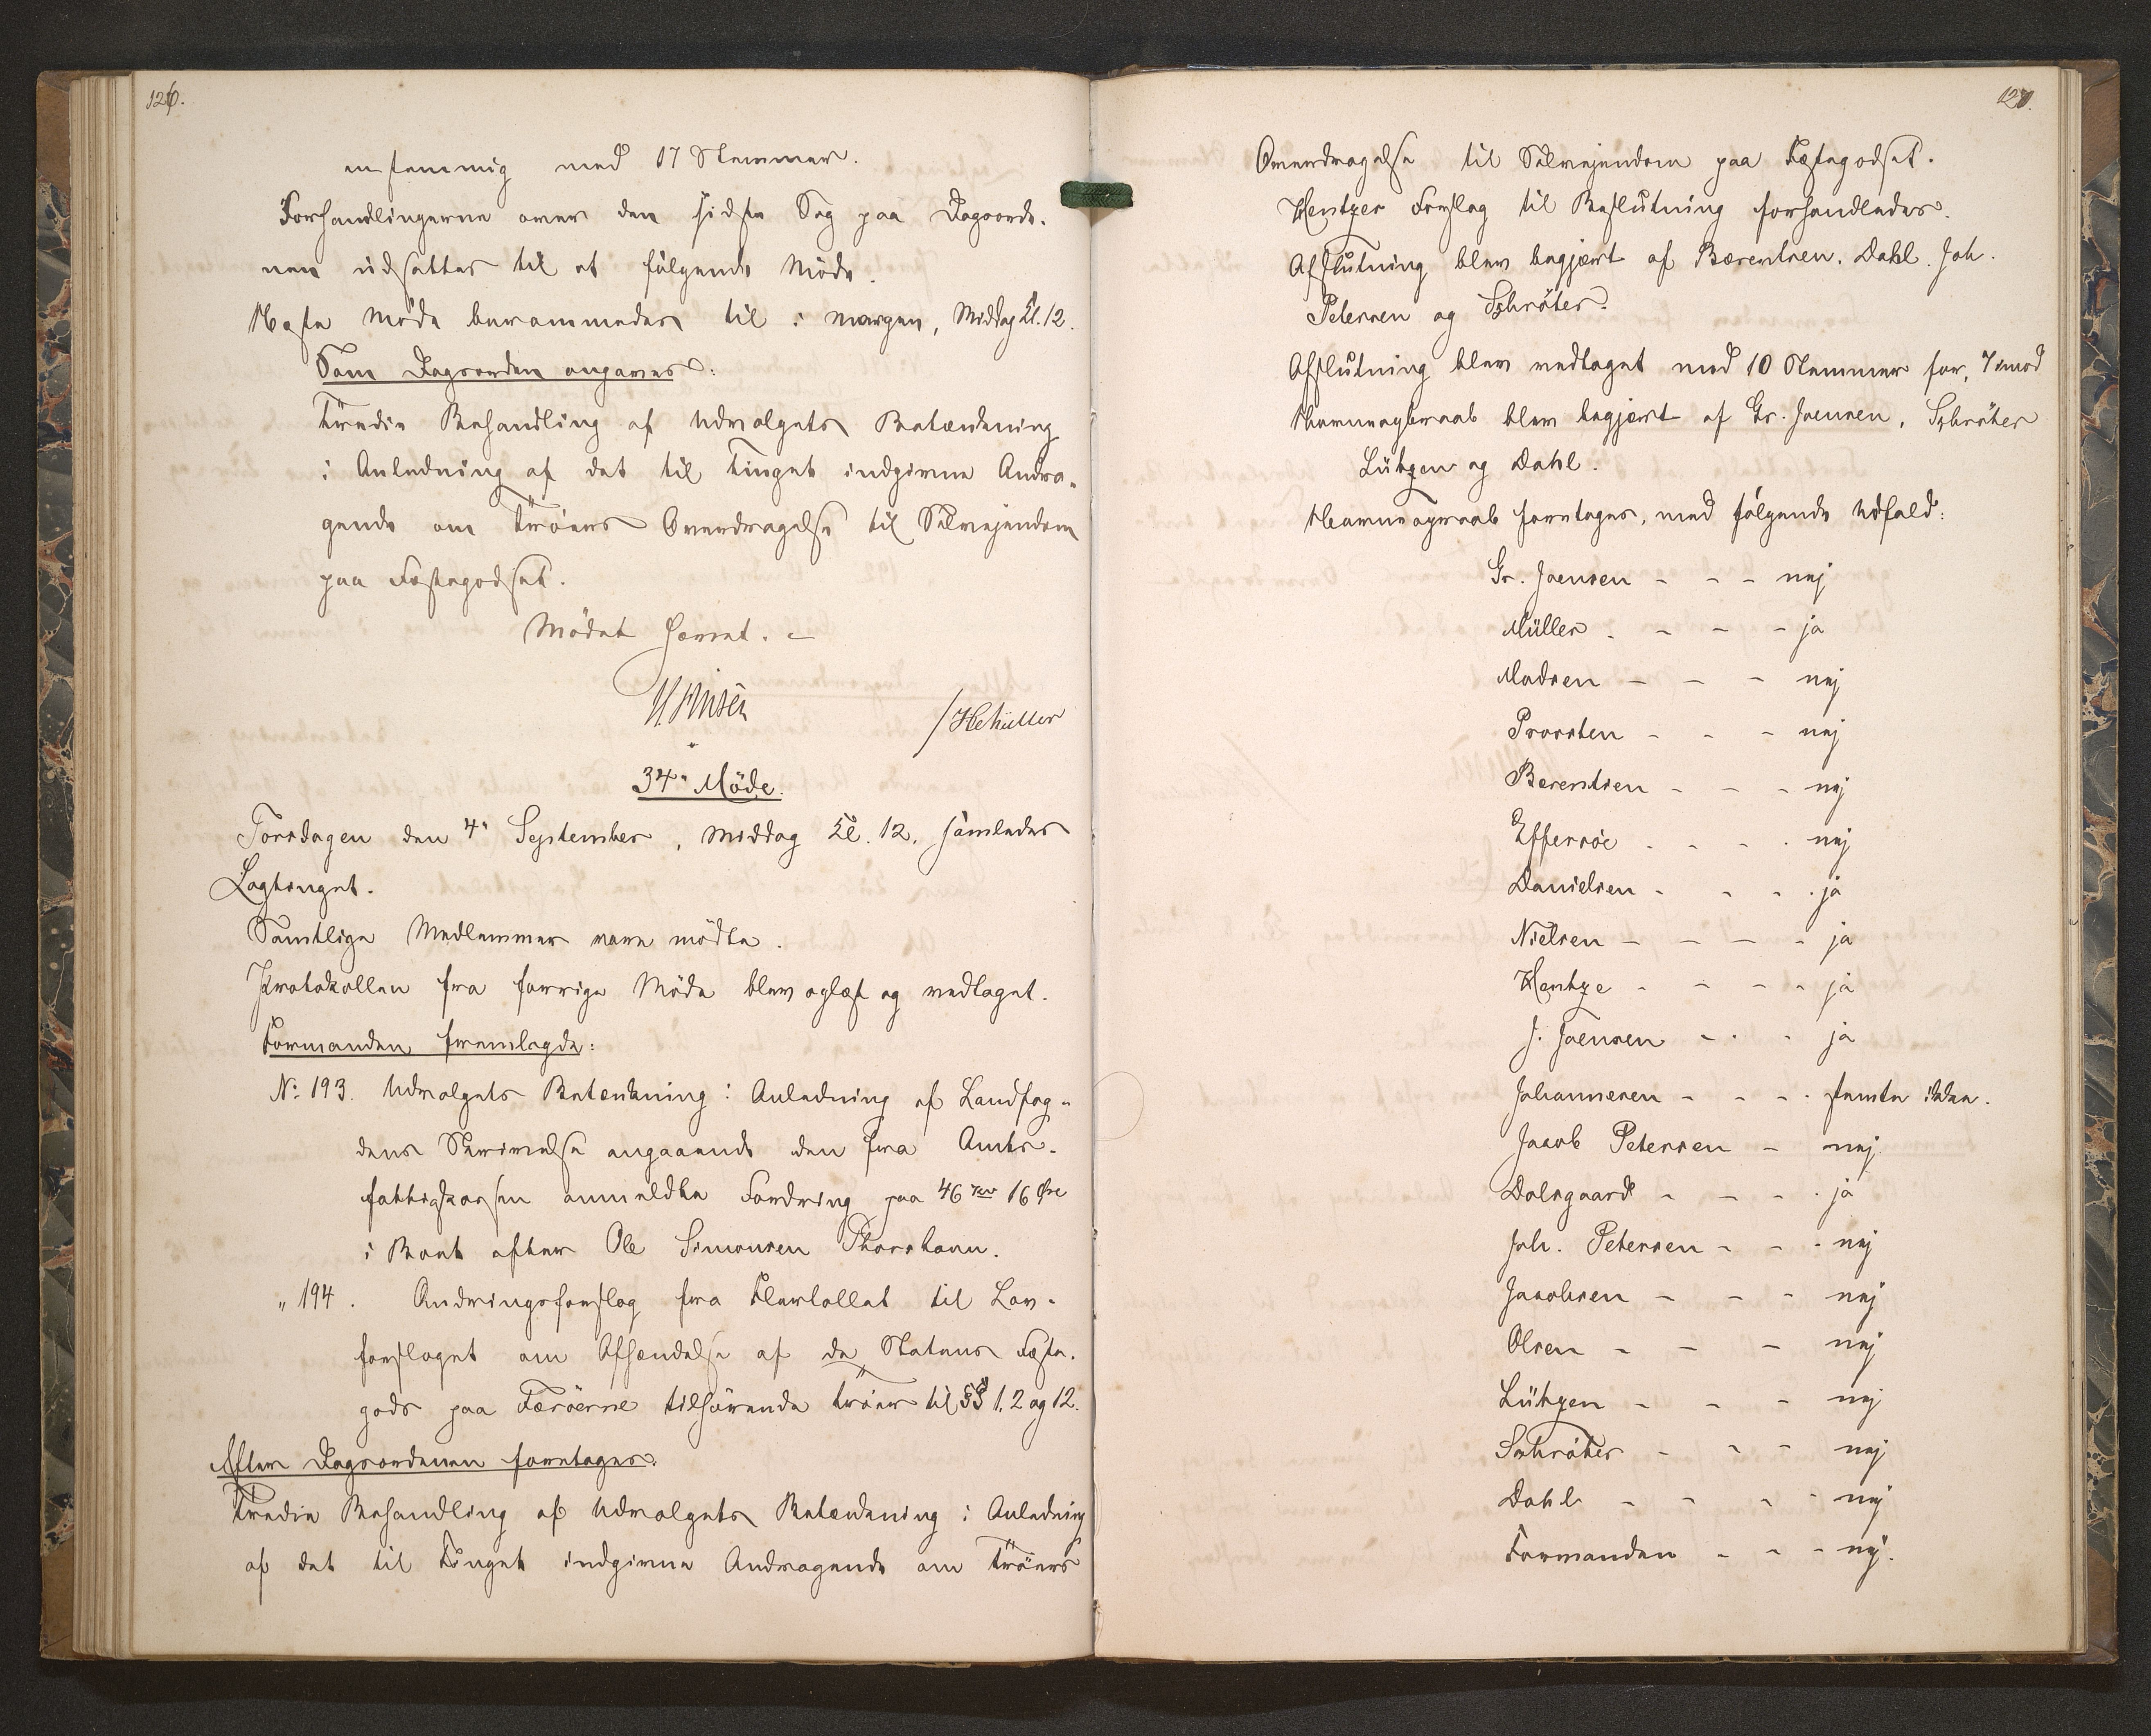 126.
enstemmig med 17 Stemmer.
Forhandlingerne over den sidste Sag paa Dagsorde-
nen udsattes til et følgende Møde.
Næste Møde berammedes til i morgen, Middag Kl. 12.
Som Dagsorden angaves:
Tredie Behandling af Udvalgets Betænkning
i Anledning af det til Tinget indgivne Andra-
gende om Trøers Overdragelse til Selveiendom
paa Fæstegodset.
Mødet hævet. —
H. Finsen
/ HCMüller
34te Møde.
Torsdagen den 4de September, Middag Kl. 12, samledes
Lagtinget.
Samtlige Medlemmer vare mødte.
Protokollen fra forrige Møde blev oplæst og vedtaget.
Formanden fremlagde:
No 193. Udvalgets Betænkning i Anledning af Landfog-
dens Skrivelse angaaende den fra Amts-
fattigkassen anmeldte Fordring paa 46 Kr 16 Øre
i Boet efter Ole Simonsen Thorshavn.
" 194. Ændringsforslag fra Flertallet til Lov-
forslaget om Afhændelse af de Statens Fæste-
gods paa Færöerne tilhørende Trøer til §§ 1, 2 og 12.
Efter Dagsordenen foretoges:
Tredie Behandling af Udvalgets Betænkning i Anledning
af det til Tinget indgivne Andragende om Trøers
127.
Overdragelse til Selveiendom paa Fæstegodset.
Hentzes Forslag til Beslutning forhandledes.
Afslutning blev begjært af Bærentsen, Dahl, Joh.
Petersen og Schröter.
Afslutning blev vedtaget med 10 Stemmer for, 7 imod
Navneopraab blev begjært af Gr. Joensen, Schröter
Lützen og Dahl.
Navneopraab foretoges, med følgende Udfald:
Gr. Joensen - - - nej
Müller - - - - ja
Madsen - - - nej
Provsten - - - nej
Bærentsen - - - nej
Effersöe - - - - nej
Danielsen - - - - ja
Nielsen - - - - ja
Hentze - - - - ja
J. Joensen - - - ja
Johannesen - - - - stemte ikke.
Jacob Petersen - nej
Dalsgaard - - - - ja
Joh. Petersen - - - nej
Jacobsen - - - nej
Olsen - - - nej
Lützen - - - nej
Schröter - - - nej
Dahl - - - - nej
Formanden - - - nej.